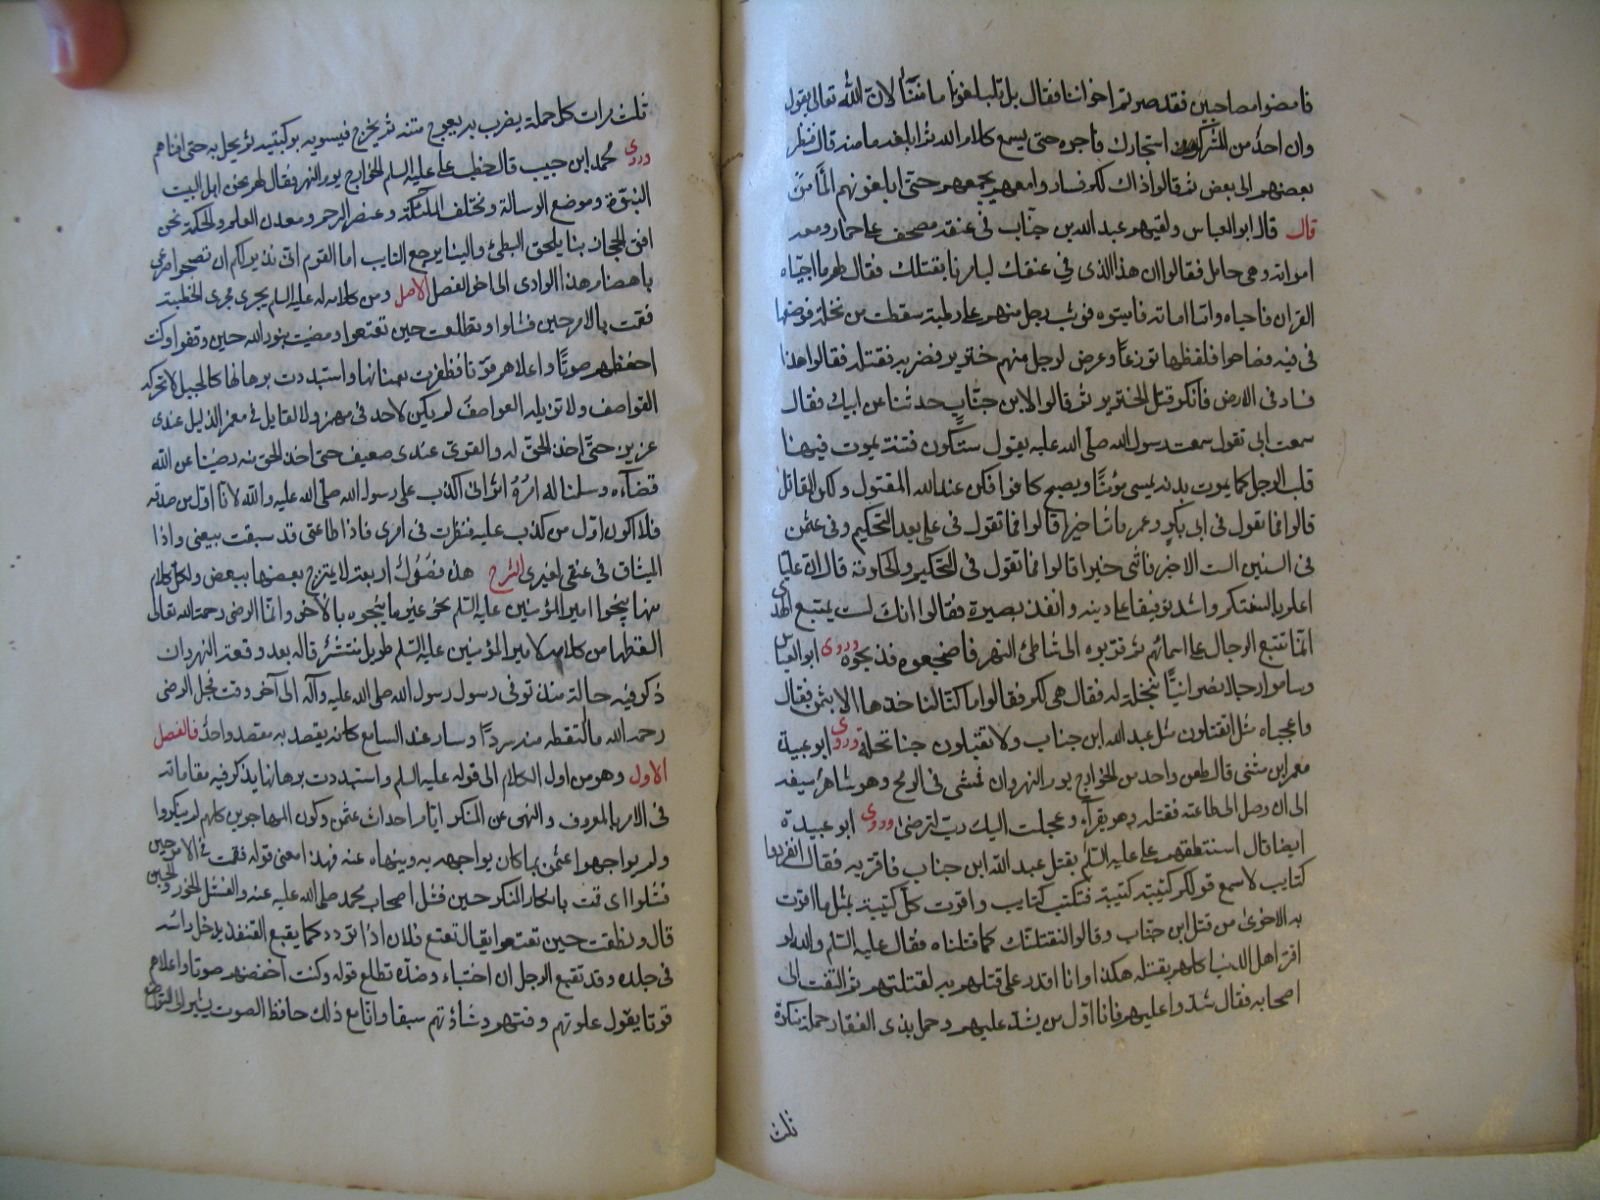 فامضوا مصاحبين فقد صرتم اخواننا فقال بل تبلغوننا ما مننا لان الله تعالى يقول
وان احد من المشركين استجارك فاجره حتى يسمع كلام الله ثم ابلغه مامنه قال فنظر
بعضهم الى بعض ثم قالوا ذاك لكم فساروا معهم بجمعهم حتى ابلغوهم المأمن
قال قال ابو العباس ولقيهم عبد الله بن جناب فى عنقه مصحف على حمار ومعه
امراته وهى حامل فقالوا ان هذا الذى فى عنقك ليامرنا بقتلك فقال لهم ما احياه
القران فاحياه واما اماته فاميتوه فوثب رجل منهم على رطبة سقطت من نخلة فوضعها
فى فيه فصاحوا فلفظها تورعا وعرض لرجل منهم خنزير فضربه فقتله فقالوا هذا
فساد فى الارض فانكر قتل الخنزير ثم قالوا لابن جناب حدثنا عن ابيك فقال
سمعت ابى تقول سمعت رسول الله صلى الله عليه يقول ستكون فتنة يموت فيها
قلب الرجل كما يموت بدنه يمسى مؤمنا ويصبح كافرا فكن عند الله المقتول ولا تكن القاتل
قالوا فما تقول فى ابى بكر وعمر فاثنا خيرا قالوا فما تقول فى على بعد التحكيم وفى عثمن
فى السنين الست الاخر فاثنى خيرا قالوا فما تقول فى التحكيم والحكومة قال ان عليا
اعلم بالله منكم واشد توقيا على دينه وانفذ بصيرة فقالوا انك لست بمتبع الهدى
انما تتبع الرجال على اسمائهم ثم قربوه الى شاطئ النهر فاضجعوه فذبحوه وروى ابو العباس
وساموا رجلا نصرانيا بنخلة له فقال هى لكم فقالوا ما كنا لناخذها الا بثمن فقال
واعجباه اتقتلون مثل عبد الله ابن جناب ولا تقبلون جنا نخلة وروى ابو عبيدة
معمر ابن مثنى قال طعن واحد من الخوارج يوم النهروان فمشى فى الرمح وهو شاهر سيفه
الى ان وصل الى طاعنه فقتله وهو يقراء وعجلت اليك رب لترضى وروى ابو عبيدة
ايضا قال استنطقهم على عليه السلم بقتل عبد الله ابن جناب فاقروا به فقال انفردوا
كتايب لاسمع قولكم كتيبة كتيبة فتكتبوا كتايب واقرت كل كتيبة بمثل ما اقرت
به الاخرى من قتل ابن جناب وقالوا لنقتلنك كما قتلناه فقال عليه السلم والله لو
اقر اهل الدنيا كلهم بقتله هكذا وانا اقدر على قتلهم به لقتلتهم ثم التفت الى
اصحابه فقال شدوا عليهم فانا اول من يشد عليهم وحمل بذى الفقار حملة منكرة
ثلث
ثلث مرات كل حملة يضرب به يعوج متنه ثم يخرج فيسويه بركبتيه ثم يحمل به حتى افناهم
وروى محمد ابن حبيب قال خطب على عليه السلم الخوارج يوم النهر فقال لهم نحن اهل البيت
النبوة وموضع الرسالة ومختلف الملئكة وعنصر الرحمة ومعدن العلم والحكمة نحن
افق الحجاز بنا يلحق البطئ والينا يرجع التايب اما القوم انى نذير لكم ان تصبحوا صرعى
باهضام هذا الوادى الى اخر الفصل الاصل ومن كلام له عليه السلم يجرى مجرى الخطبة
فقمت بالامر حين فشلوا وتطلعت حين تقتعوا ومضيت بنور الله حين وقفوا وكنت
اخفضهم صوتا واعلاهم فوتا فظفرت بعنانها واستبددت برهانها كالجبل لا تحركه
القواصف ولا تزيله العواصف لم يكن لاحد فى مهمز ولا لقايل فى مغمز الذليل عندى
عزيز حتى اخذ الحق له والقوى عندى ضعيف حتى اخذ الحق منه رضينا عن الله
قضاءه وسلمنا لله امره اترانى اكذب على رسول الله صلى الله عليه والله لانا اول من صدقه
فلا اكون اول من كذب عليه فنظرت فى امرى فاذا طاعتى قد سبقت بيعتى واذا
الميثاق فى عنقى لغيرى الشرح هذه فصول اربعة لا يمتزج بعضها ببعض ولكل كلام
منها ينحوا امير المؤمنين عليه السلم نحو غير ما ينحوه بالاخر وانما الرضى رحمه الله تعالى
التقطها من كلام لامير المؤمنين عليه السلم طويل منتشر قاله بعد وقعة النهروان
ذكر فيه حالة منذ توفى رسول رسول الله صلى الله عليه وآله الى آخر وقت فجعل الرضى
رحمه الله ما التقطه منه سردا وسار عند السامع كانه يقصد به مقصد واحد فالفصل
الاول وهو من اول الكلام الى قوله عليه السلم واستبددت برهانها يذكر فيه مقاماته
فى الامر بالمعروف والنهى عن المنكر ايام احداث عثمن وكون المهاجرين كلهم لم ينكروا
ولم يواجهوا عثمن بما كان يواجهه به وينهاه عنه فهذا معنى قوله فقمت فى الامر حين
فشلوا اى قمت بانكار المنكر حين فشل اصحاب محمد صلى الله عليه عنه والفشل الخور والجبن
قال ونطقت حين تقتعوا يقال تقتع فلان اذا تردد كما يقبع القنفذ يدخل راسه
فى جلده وقد تقبع الرجل ان اختباء وضده تطلع قوله وكنت اخفضهم صوتا واعلاهم
فوتا يقول علوتهم وفتهم وشاذتهم سبقا وانا مع ذلك حافظ الصوت يشير الى التواضع